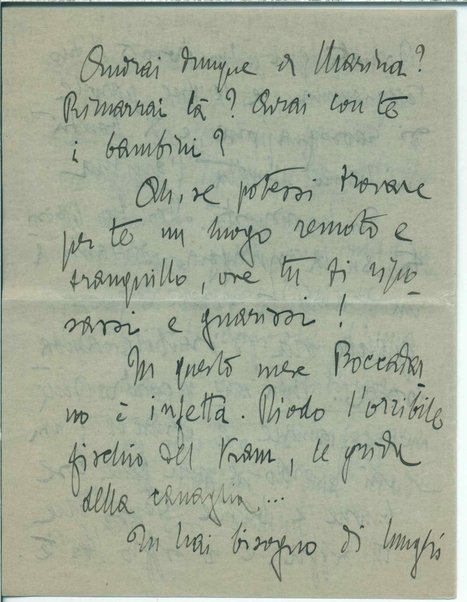 Andrai dunque a Marina?
Rimarrai là? Avrai con te
i bambini?
Ah, se potessi trovare
per te un luogo remoto e
tranquillo, ove tu ti ripo
sassi e guarissi!
In questo mese Boccada
no è infetta. Riodo l'orribile
fischio del tram, le grida
della canaglia...
Tu hai bisogno di lunghis